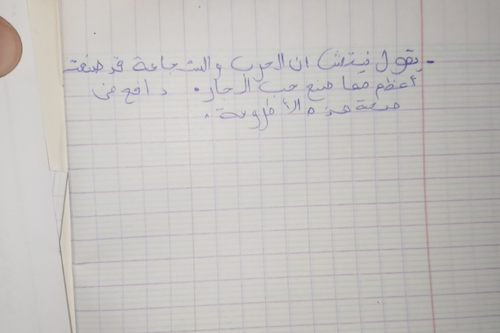 - يقول نيتش ان الحرب والشجاعة قد صنعت
أعظم مما صنع حب الجار. دافع عن
صحة هذه الأطروحة.